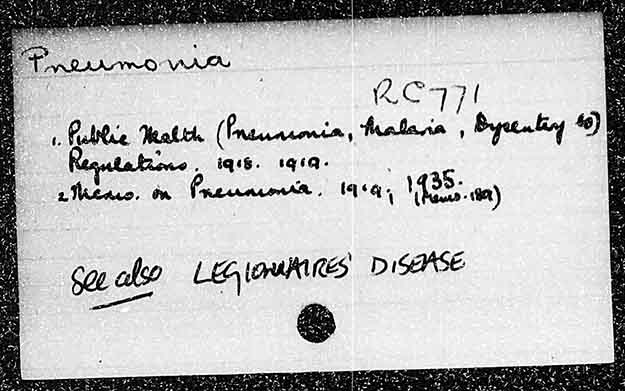 Pneumonia
RC771
1. Public Health (Pneumonia, Malaria, Dysentery &c)
Regulations. 1918. 1919.
2 Memo. on Pneumonia. 1919; 1935.
(Memo. 189)
See also LEGIONNAIRES' DISEASE